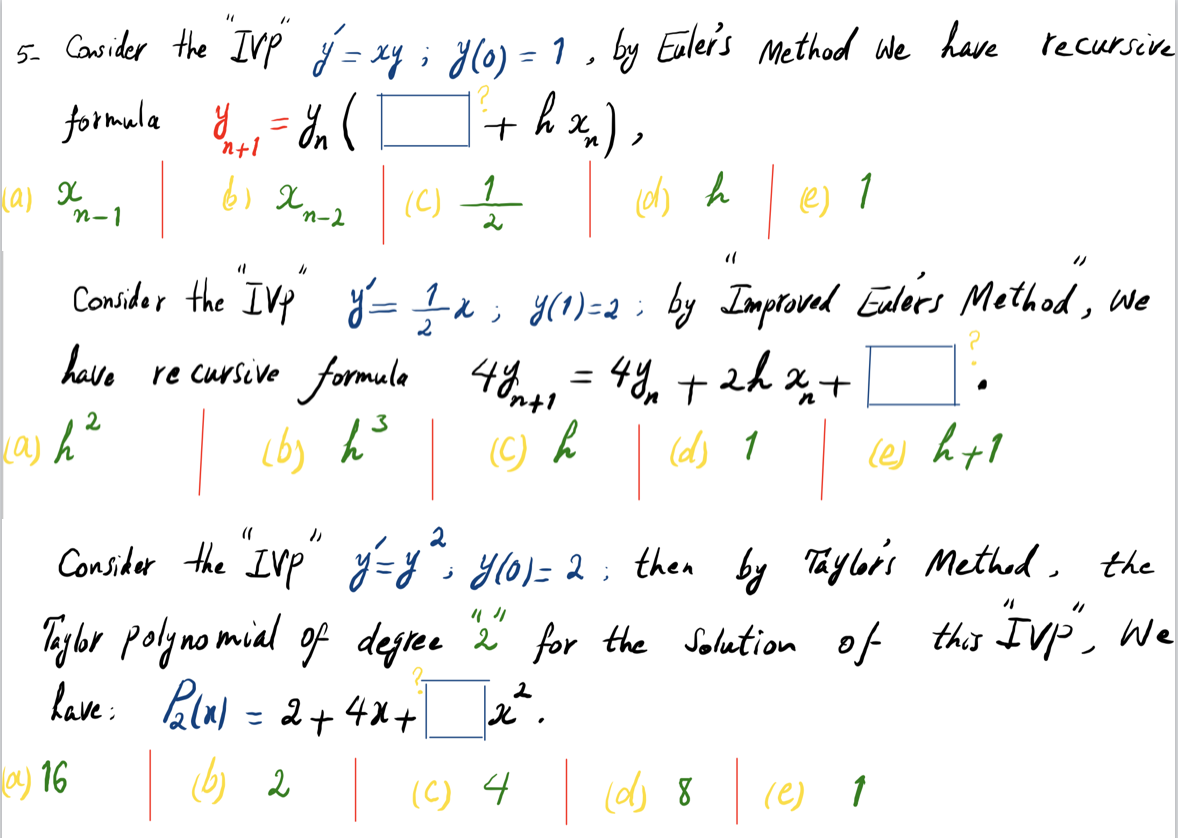 5- Consider the "IVP" y' = xy ; y(0) = 1 , by Euler's Method we have recursive
formula y_{n+1} = y_n ( □? + h x_n ) ,
(a) x_{n-1} | (b) x_{n-2} | (c) 1/2 | (d) h | (e) 1
Consider the "IVP" y' = 1/2 x ; y(1)=2 ; by "Improved Euler's Method", we
have recursive formula 4y_{n+1} = 4y_n + 2h x_n + □? .
(a) h² | (b) h³ | (c) h | (d) 1 | (e) h+1
Consider the "IVP" y'=y² ; y(0)=2 ; then by Taylor's Method , the
Taylor polynomial of degree "2" for the Solution of this "IVP", We
have: P₂(x) = 2 + 4x + □? x² .
(a) 16 | (b) 2 | (c) 4 | (d) 8 | (e) 1